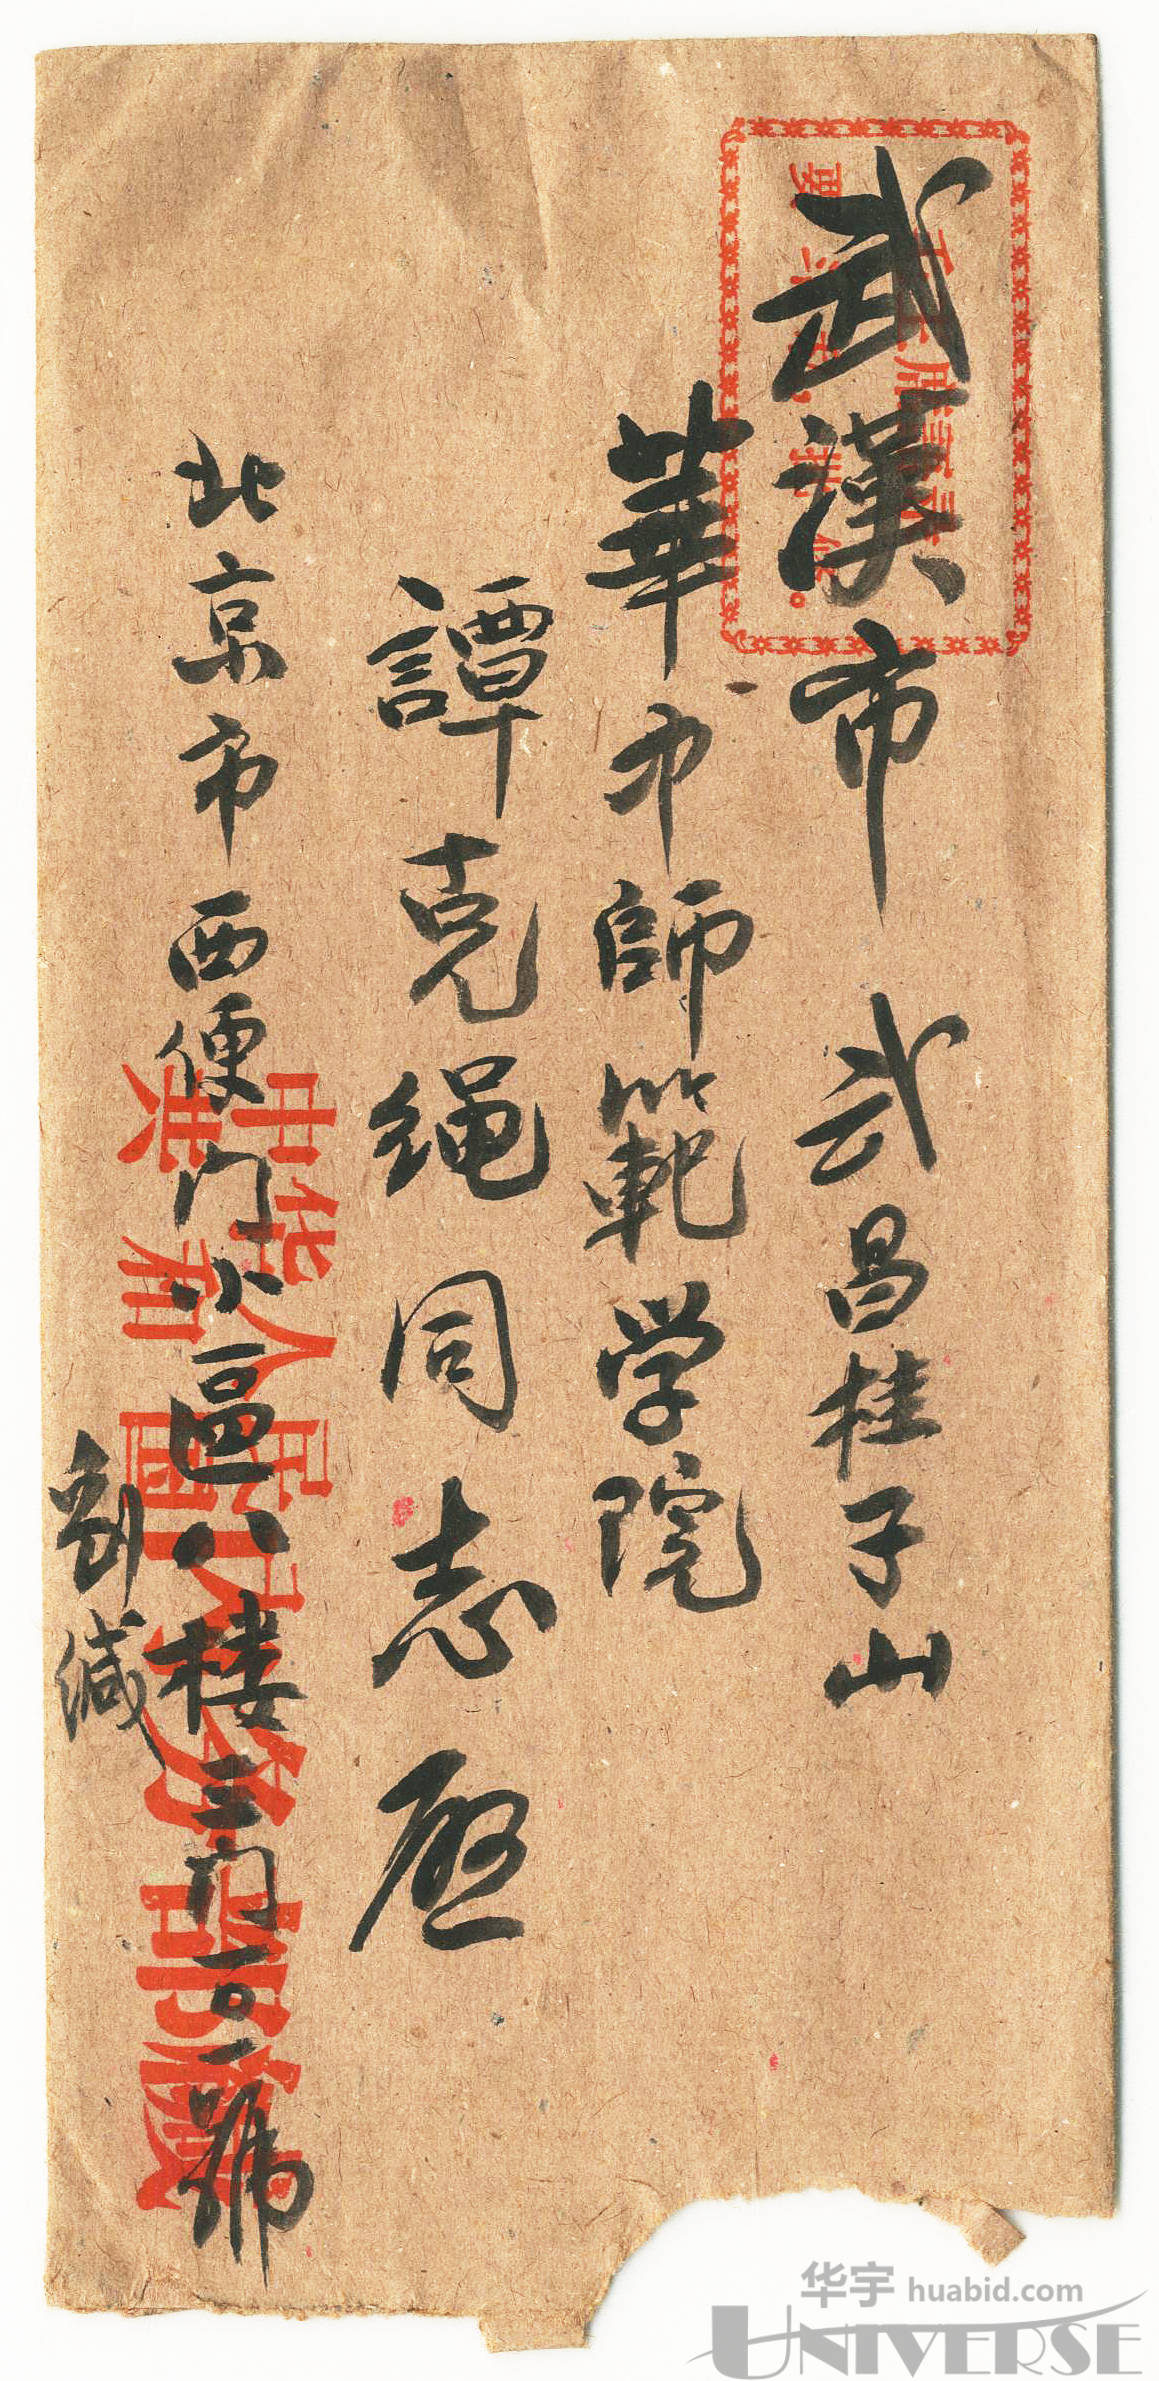 武漢市 武昌桂子山
華中師範学院
譚克绳同志啟
北京市西便门小區八楼三门一〇一號
劉缄
中华人民
共和國
华宇 huabid.com
UNIVERSE